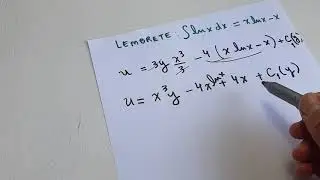 LEMBRETE: ∫ln x dx = x ln x - x
u = 3y x³/3 - 4 (x ln x - x) + C₁(y)
u = x³y - 4x ln x + 4x + C₁(y)